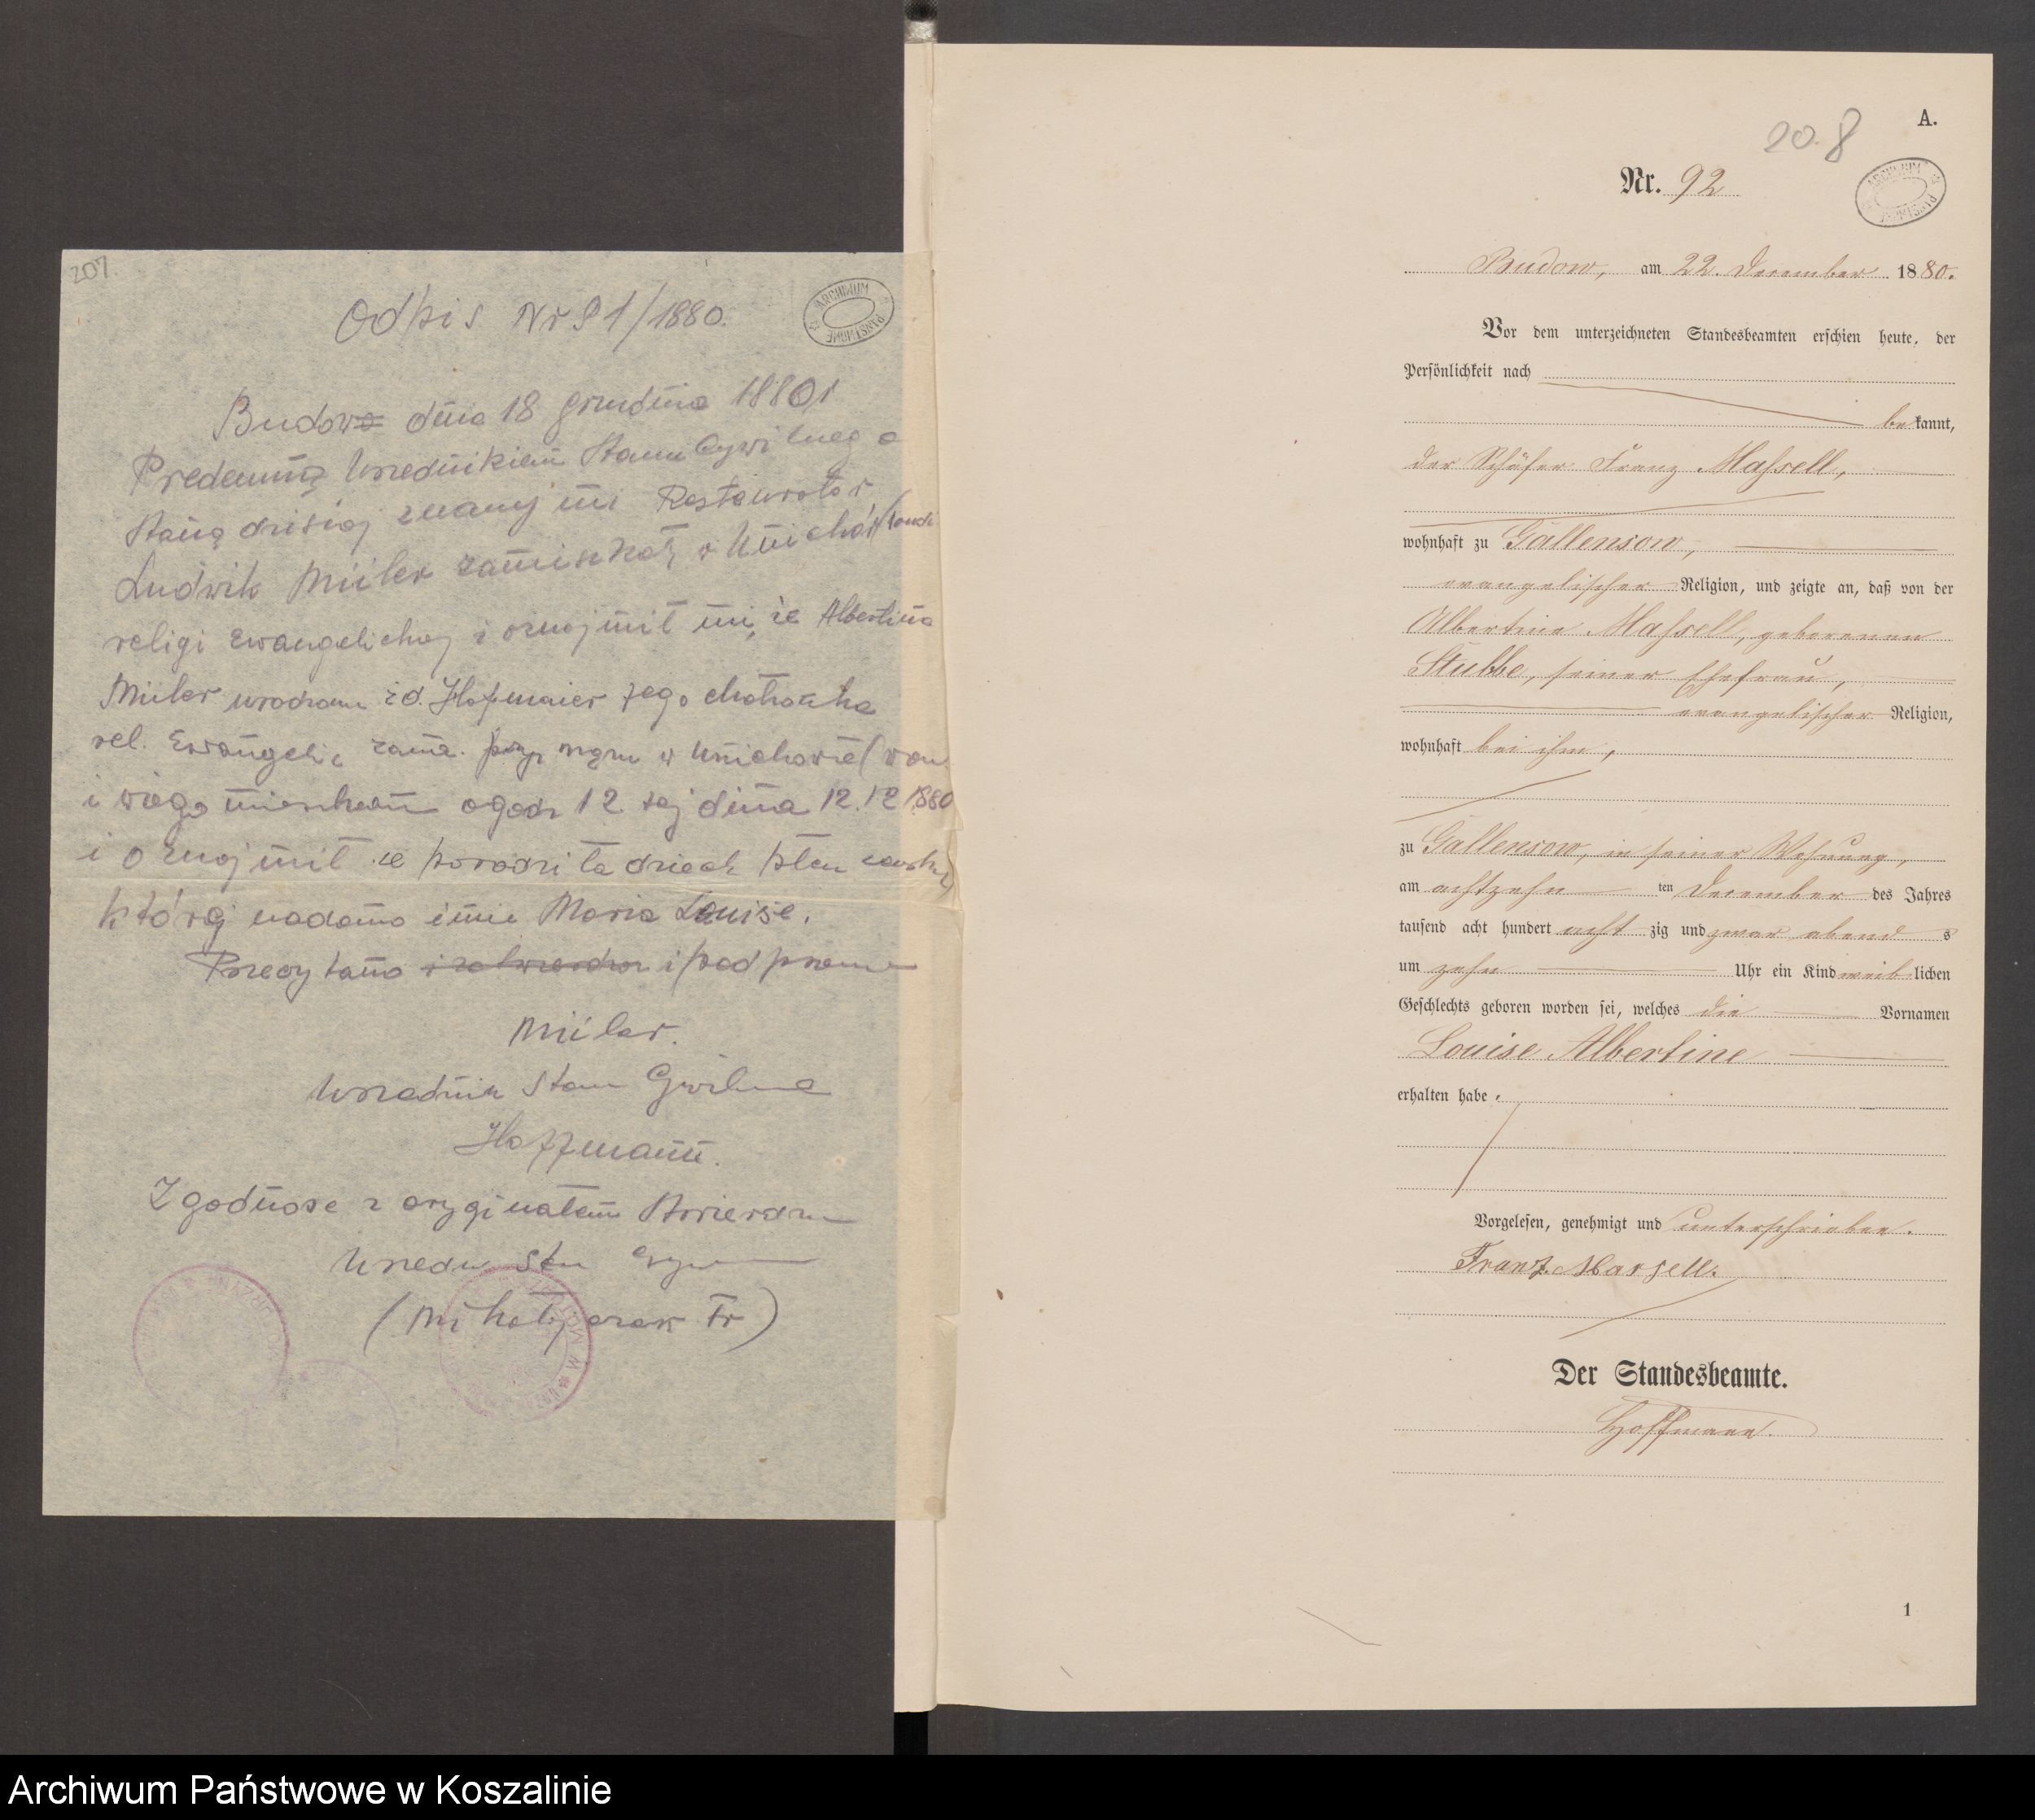 207.
Odpis Nr 91/1880.
ARCHIWUM PAŃSTWOWE
Budow dnia 18 grudnia 1880 r
Przedemną Urzednikiem Stanu Cywilnego
Staną dzisiaj znany mi Restaurator
Ludwik Müler zamiszkały w Unichów
religi Ewangelickiej i oznajmił mi, że Albertina
Müler urodzona zd. Hofmaier jego małżonka
rel. Ewangelic zamn. przy mężu w Unichowie
i w jego mieszkaniu o godz 12 tej dnia 12.12 1880
i oznajmił że porodziła dziecko płci żeńskiej
której nadano imie Maria Louise.
Przeczytano i podpisano
Müler.
Urzednik Stanu Cywilnego
Hoffmann.
Zgodnosc z oryginałem stwierdzam
Urzedn Stanu Cyw
(Mikołajczak Fr)
A.
208
Nr. 92
ARCHIWUM PAŃSTWOWE
Budow, am 22. December 1880.
Vor dem unterzeichneten Standesbeamten erschien heute, der
Persönlichkeit nach
bekannt,
der Schäfer Franz Massell,
wohnhaft zu Gallensow,
evangelischer Religion, und zeigte an, daß von der
Albertine Massell, geborenen
Stubbe, seiner Ehefrau,
evangelischer Religion,
wohnhaft bei ihm,
zu Gallensow, in seiner Wohnung,
am achtzehn ten December des Jahres
tausend acht hundert acht zig und zwar abend s
um zehn Uhr ein Kind weiblichen
Geschlechts geboren worden sei, welches die Vornamen
Louise Albertine
erhalten habe.
Vorgelesen, genehmigt und unterschrieben.
Franz Massell.
Der Standesbeamte.
Hoffmann.
1
Archiwum Państwowe w Koszalinie